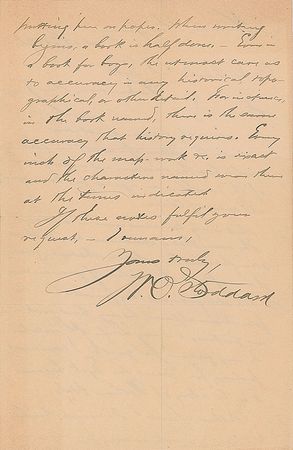 putting pen on paper. When writing
begins, a book is half done. – Even in
a book for boys, the utmost care as
to accuracy in any historical topo-
graphical, or other detail. For instance,
in the book named, there is the same
accuracy that history requires. Every
inch of the map-work &c. is exact
and the characters named were there
at the times indicated
If these notes fulfil your
request, – I remain,
Yours truly,
W. O. Stoddard